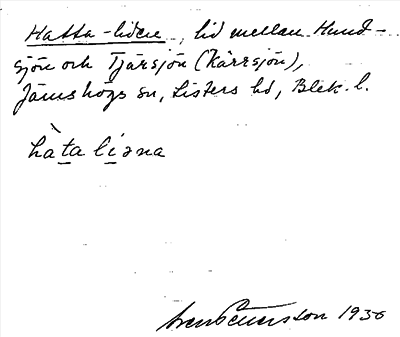 Hatta-liden, lid mellan Hund-
sjön och Tjärsjön (Kärrsjön),
Jämshögs sn, Listers hd, Blek. l.
hàta liəna
Sven Benson 1936